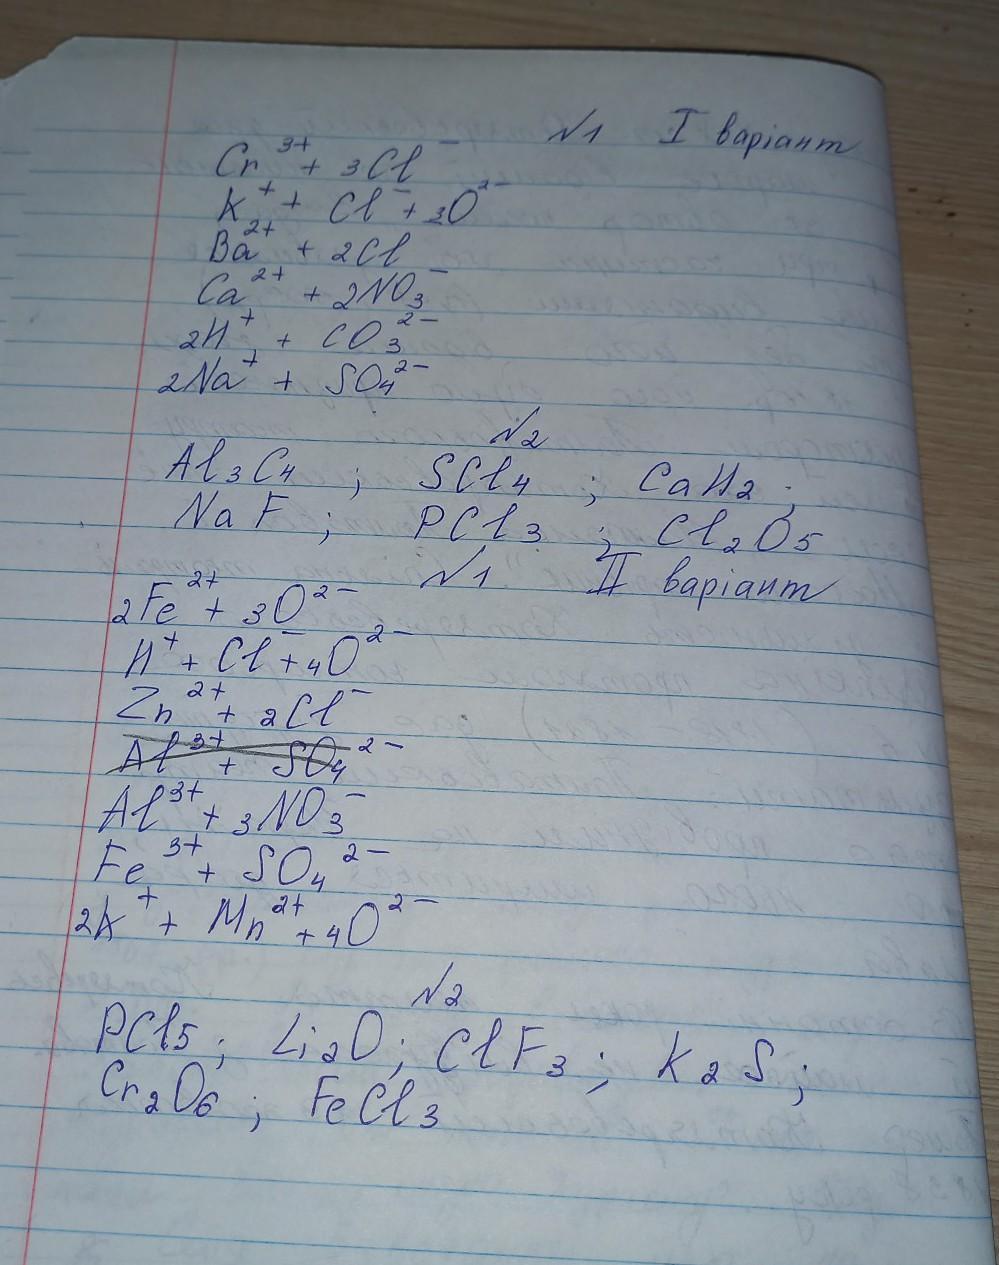 №1 I варіант
Cr³⁺ + 3Cl⁻
K⁺ + Cl⁻ + 3O²⁻
Ba²⁺ + 2Cl
Ca²⁺ + 2NO₃⁻
2H⁺ + CO₃²⁻
2Na⁺ + SO₄²⁻
№2
Al₃C₄ ; SCl₄ ; CaH₂ ;
NaF ; PCl₃ ; Cl₂O₅
№1 II варіант
2Fe²⁺ + 3O²⁻
H⁺ + Cl⁻ + 4O²⁻
Zn²⁺ + 2Cl⁻
Al³⁺ + SO₄²⁻
Al³⁺ + 3NO₃⁻
Fe³⁺ + SO₄²⁻
2K⁺ + Mn²⁺ + 4O²⁻
№2
PCl5 ; Li₂O ; ClF₃ ; K₂S ;
Cr₂O₆ ; FeCl₃